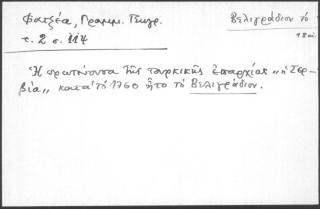 Φατζέα, Γραμμ. Γεωγρ.
τ. 2 σ. 117
Βελιγράδιον τό
18αἰ.
Ἡ πρωτεύουσα τῆς τουρκικῆς ἐπαρχίας "ἡ Σερ-
βία" κατά τό 1760 ἦτο τό Βελιγράδιον.